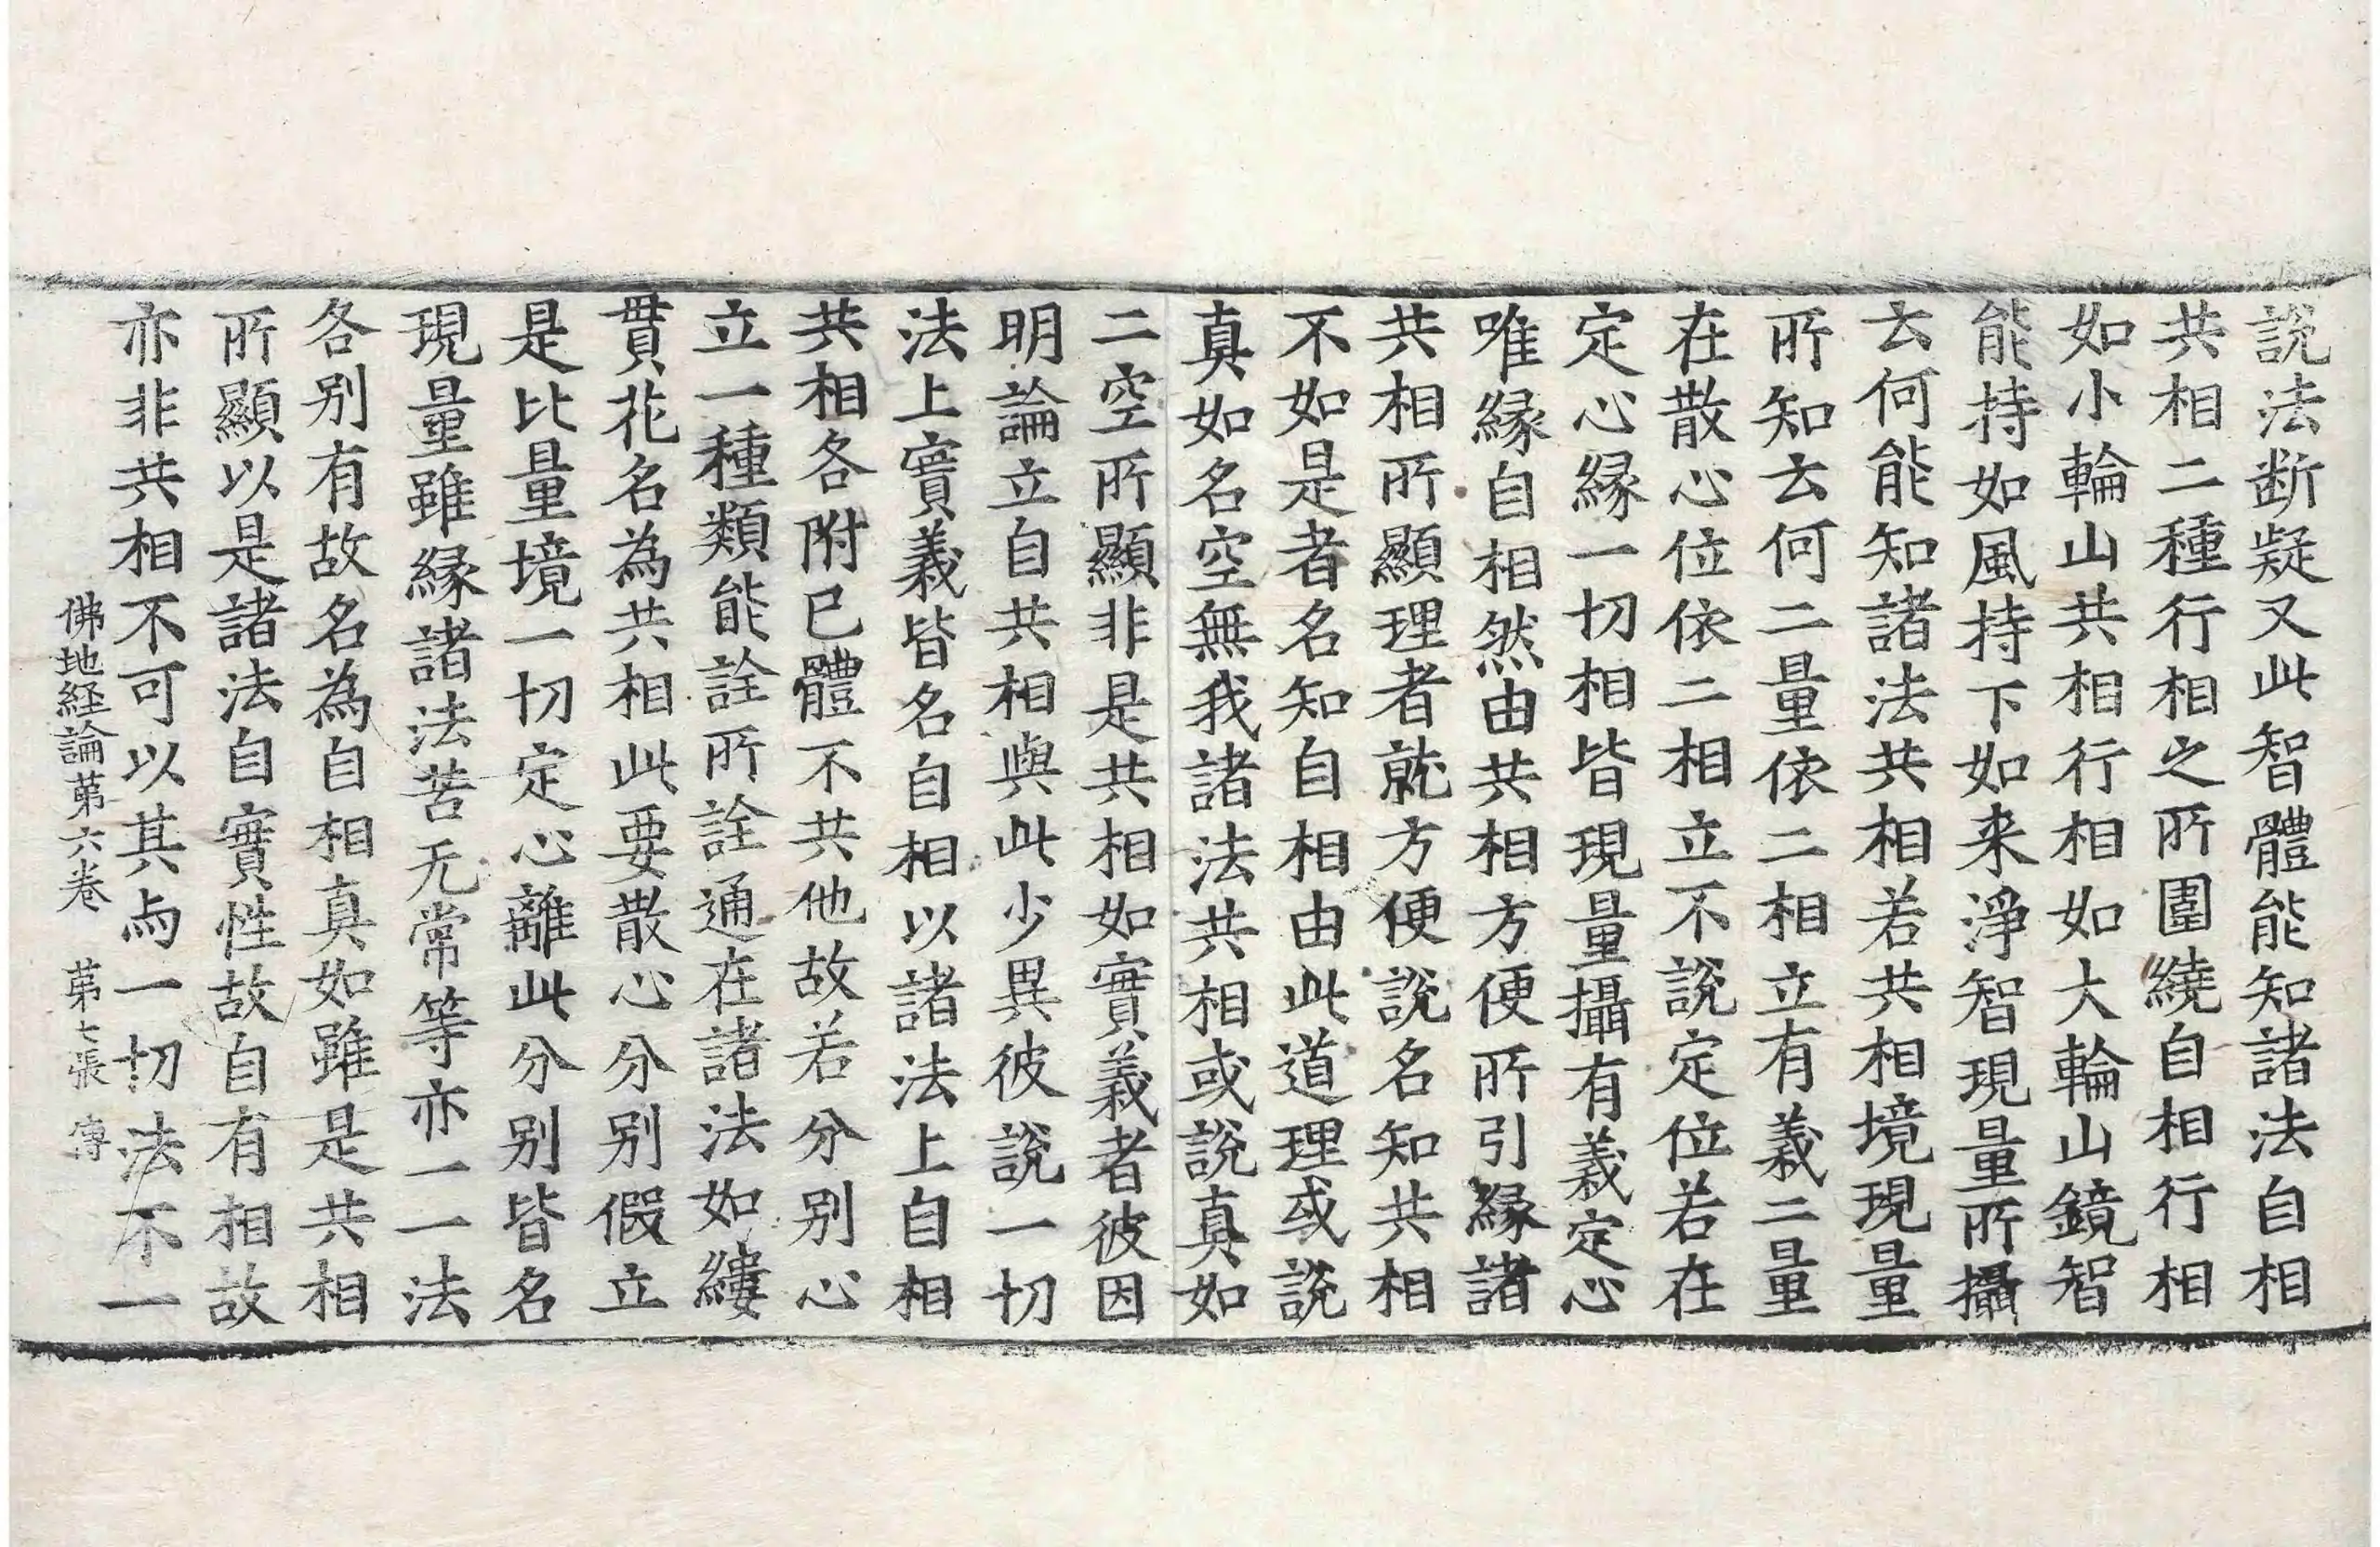 說法断疑又此智體能知諸法自相
共相二種行相之所圍繞自相行相
如小輪山共相行相如大輪山鏡智
能持如風持下如来淨智現量所攝
云何能知諸法共相若共相境現量
所知云何二量依二相立有義二量
在散心位依二相立不說定位若在
定心縁一切相皆現量攝有義定心
唯縁自相然由共相方便所引縁諸
共相所顯理者就方便說名知共相
不如是者名知自相由此道理或說
真如名空無我諸法共相或說真如
二空所顯非是共相如實義者彼因
明論立自共相與此少異彼說一切
法上實義皆名自相以諸法上自相
共相各附已體不共他故若分別心
立一種類能詮所詮通在諸法如縷
貫花名為共相此要散心分別假立
是比量境一切定心離此分別皆名
現量雖縁諸法苦无常等亦一一法
各別有故名為自相真如雖是共相
所顯以是諸法自實性故自有相故
亦非共相不可以其与一切法不一
佛地経論第六卷 第七張 傳